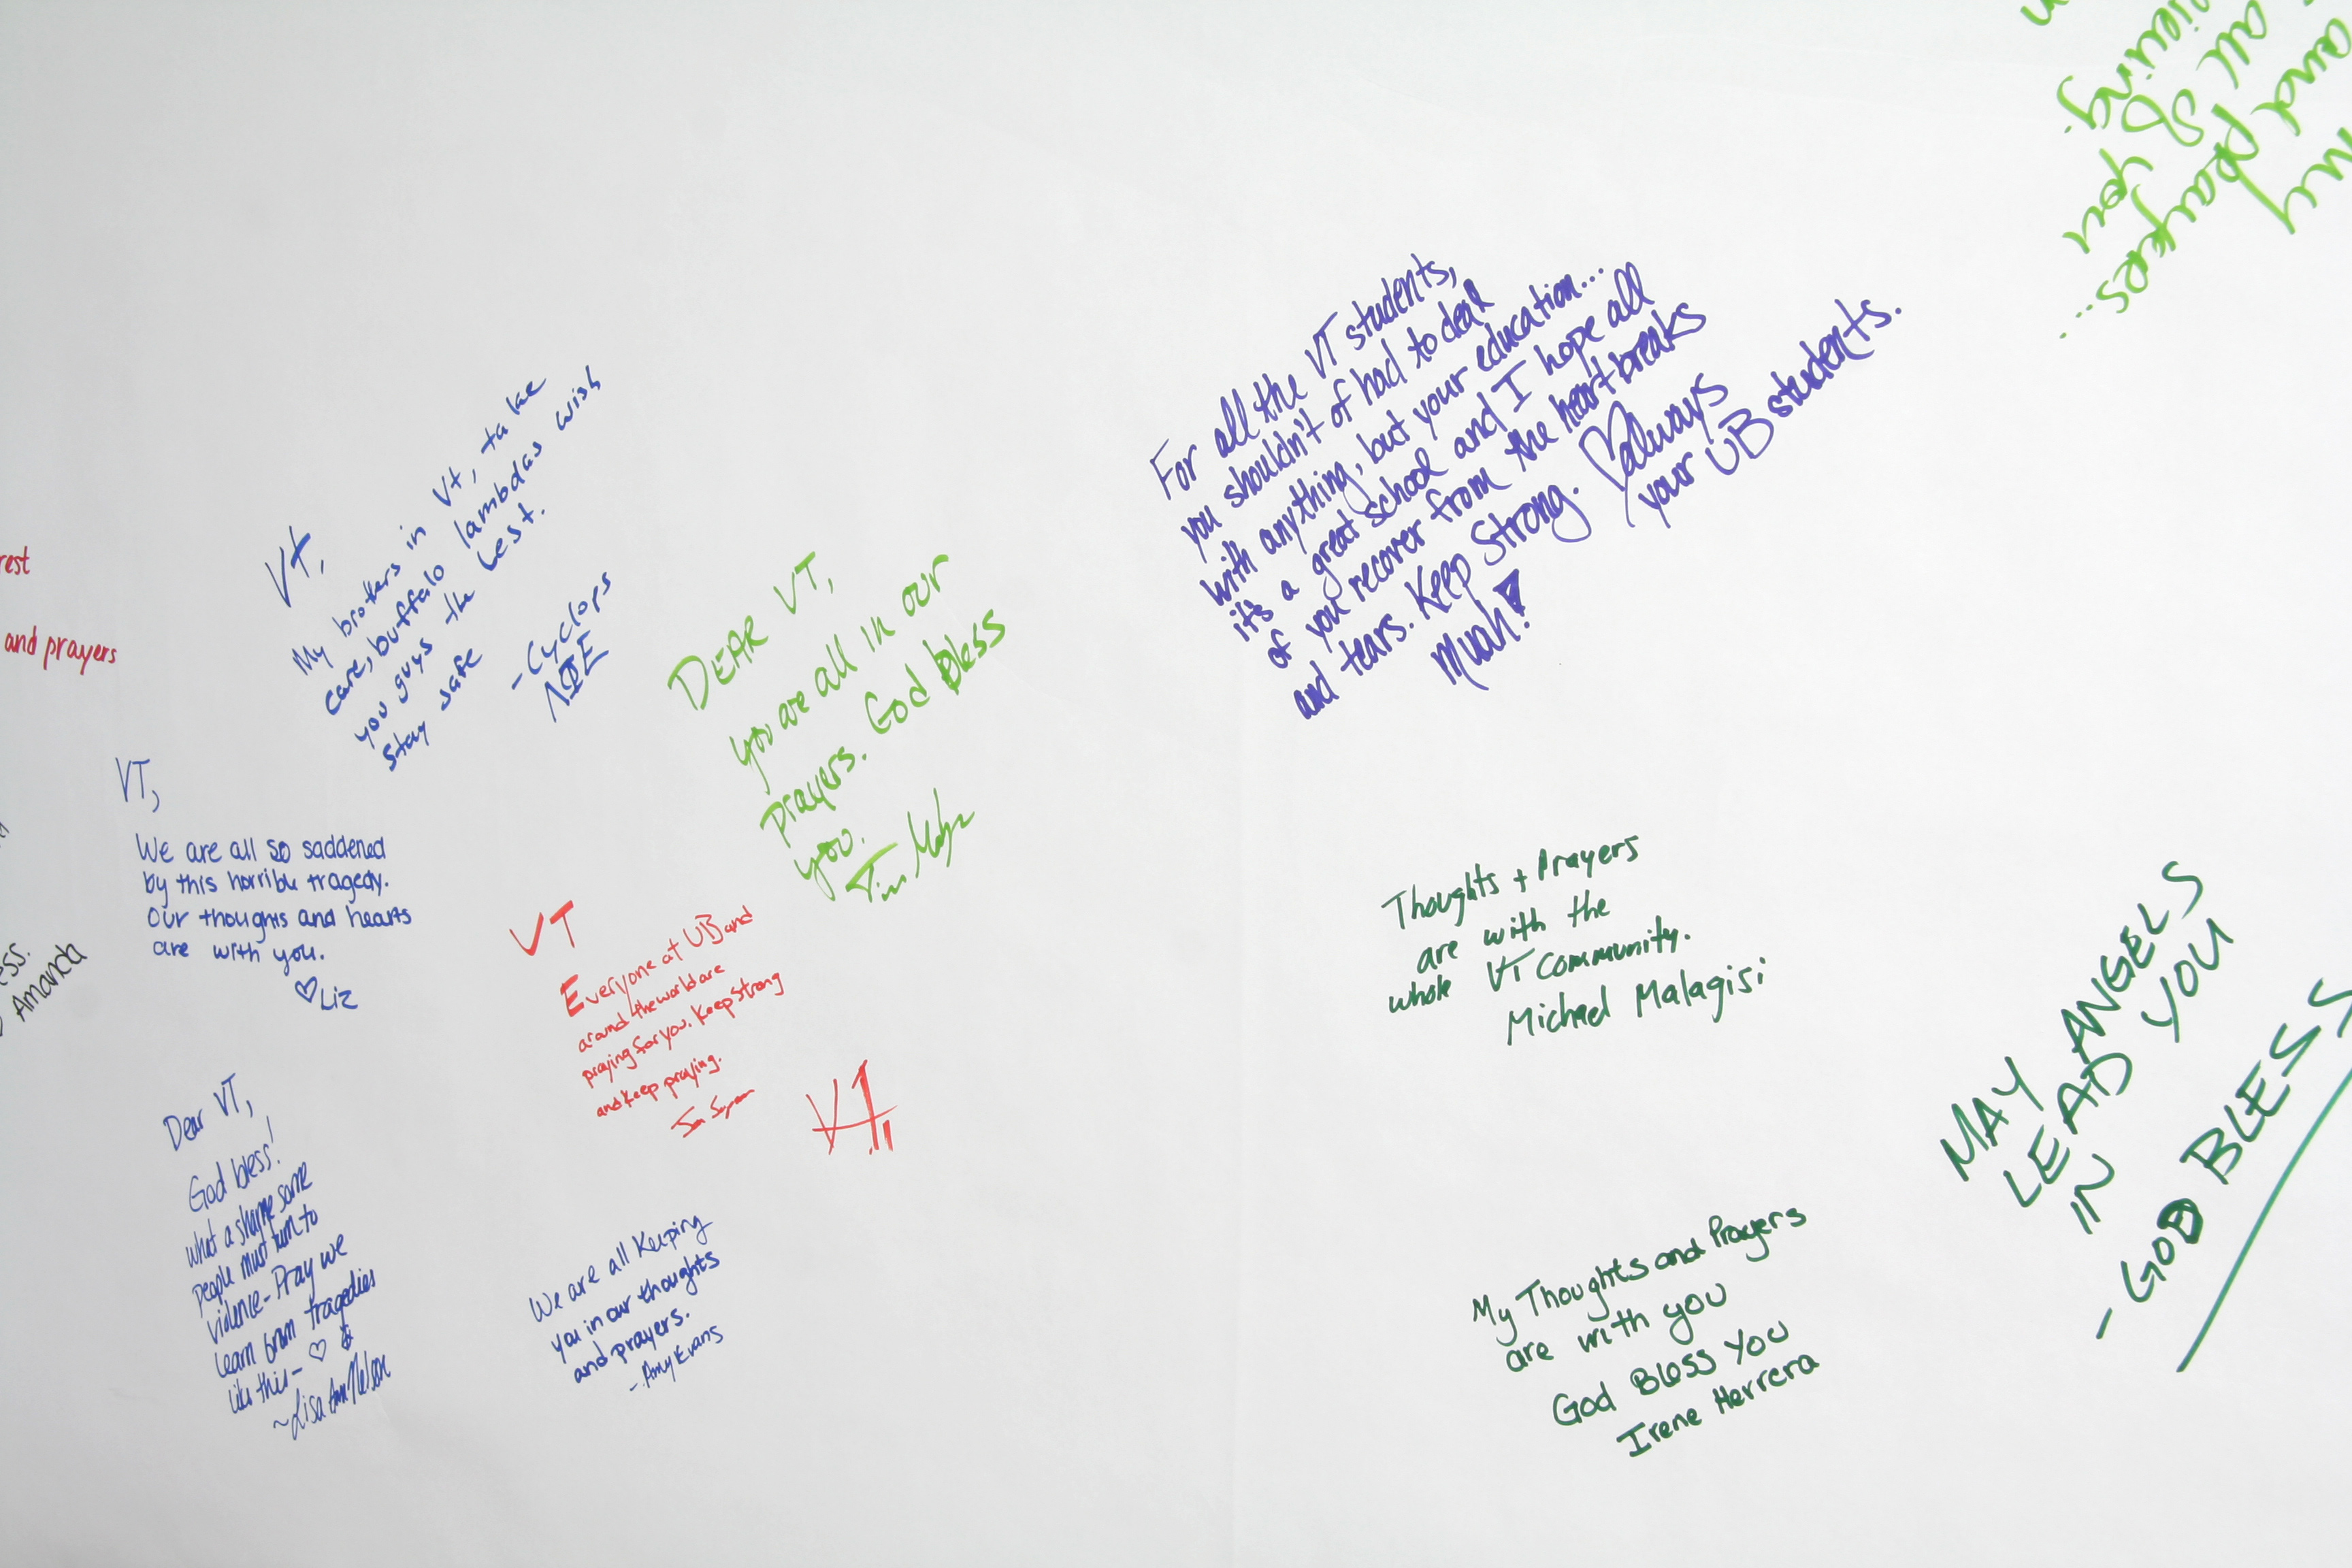 rest
and prayers
ess.
Amanda
Vt,
My brothers in Vt, take
care, buffalo lambdas wish
you guys the best.
Stay safe
-Cyclops
ΛΦE
VT,
We are all so saddened
by this horrible tragedy.
Our thoughts and hearts
are with you.
♡Liz
Dear VT,
God bless!
what a shame some
people must turn to
violence- Pray we
learn from tragedies
like this- ♡
~Lisa Ann Nelson
DEAR VT,
you are all in our
prayers. God bless
you.
Tim
VT
Everyone at UB and
around the world are
praying for you. Keep Strong
and keep praying.
VT,
We are all Keeping
you in our thoughts
and prayers.
- Amy Evans
For all the VT students,
you shouldn't of had to deal
with anything, but your education...
it's a great school and I hope all
of you recover from the heartbreaks
and tears. Keep Strong. ♡always
your UB students.
Muah!
Thoughts + Prayers
are with the
whole VT Community.
Michael Malagisi
My Thoughts and Prayers
are with you
God Bless You
Irene Herrera
MAY ANGELS
LEAD YOU
IN
- GOD BLESS
my
and prayers...
all of you